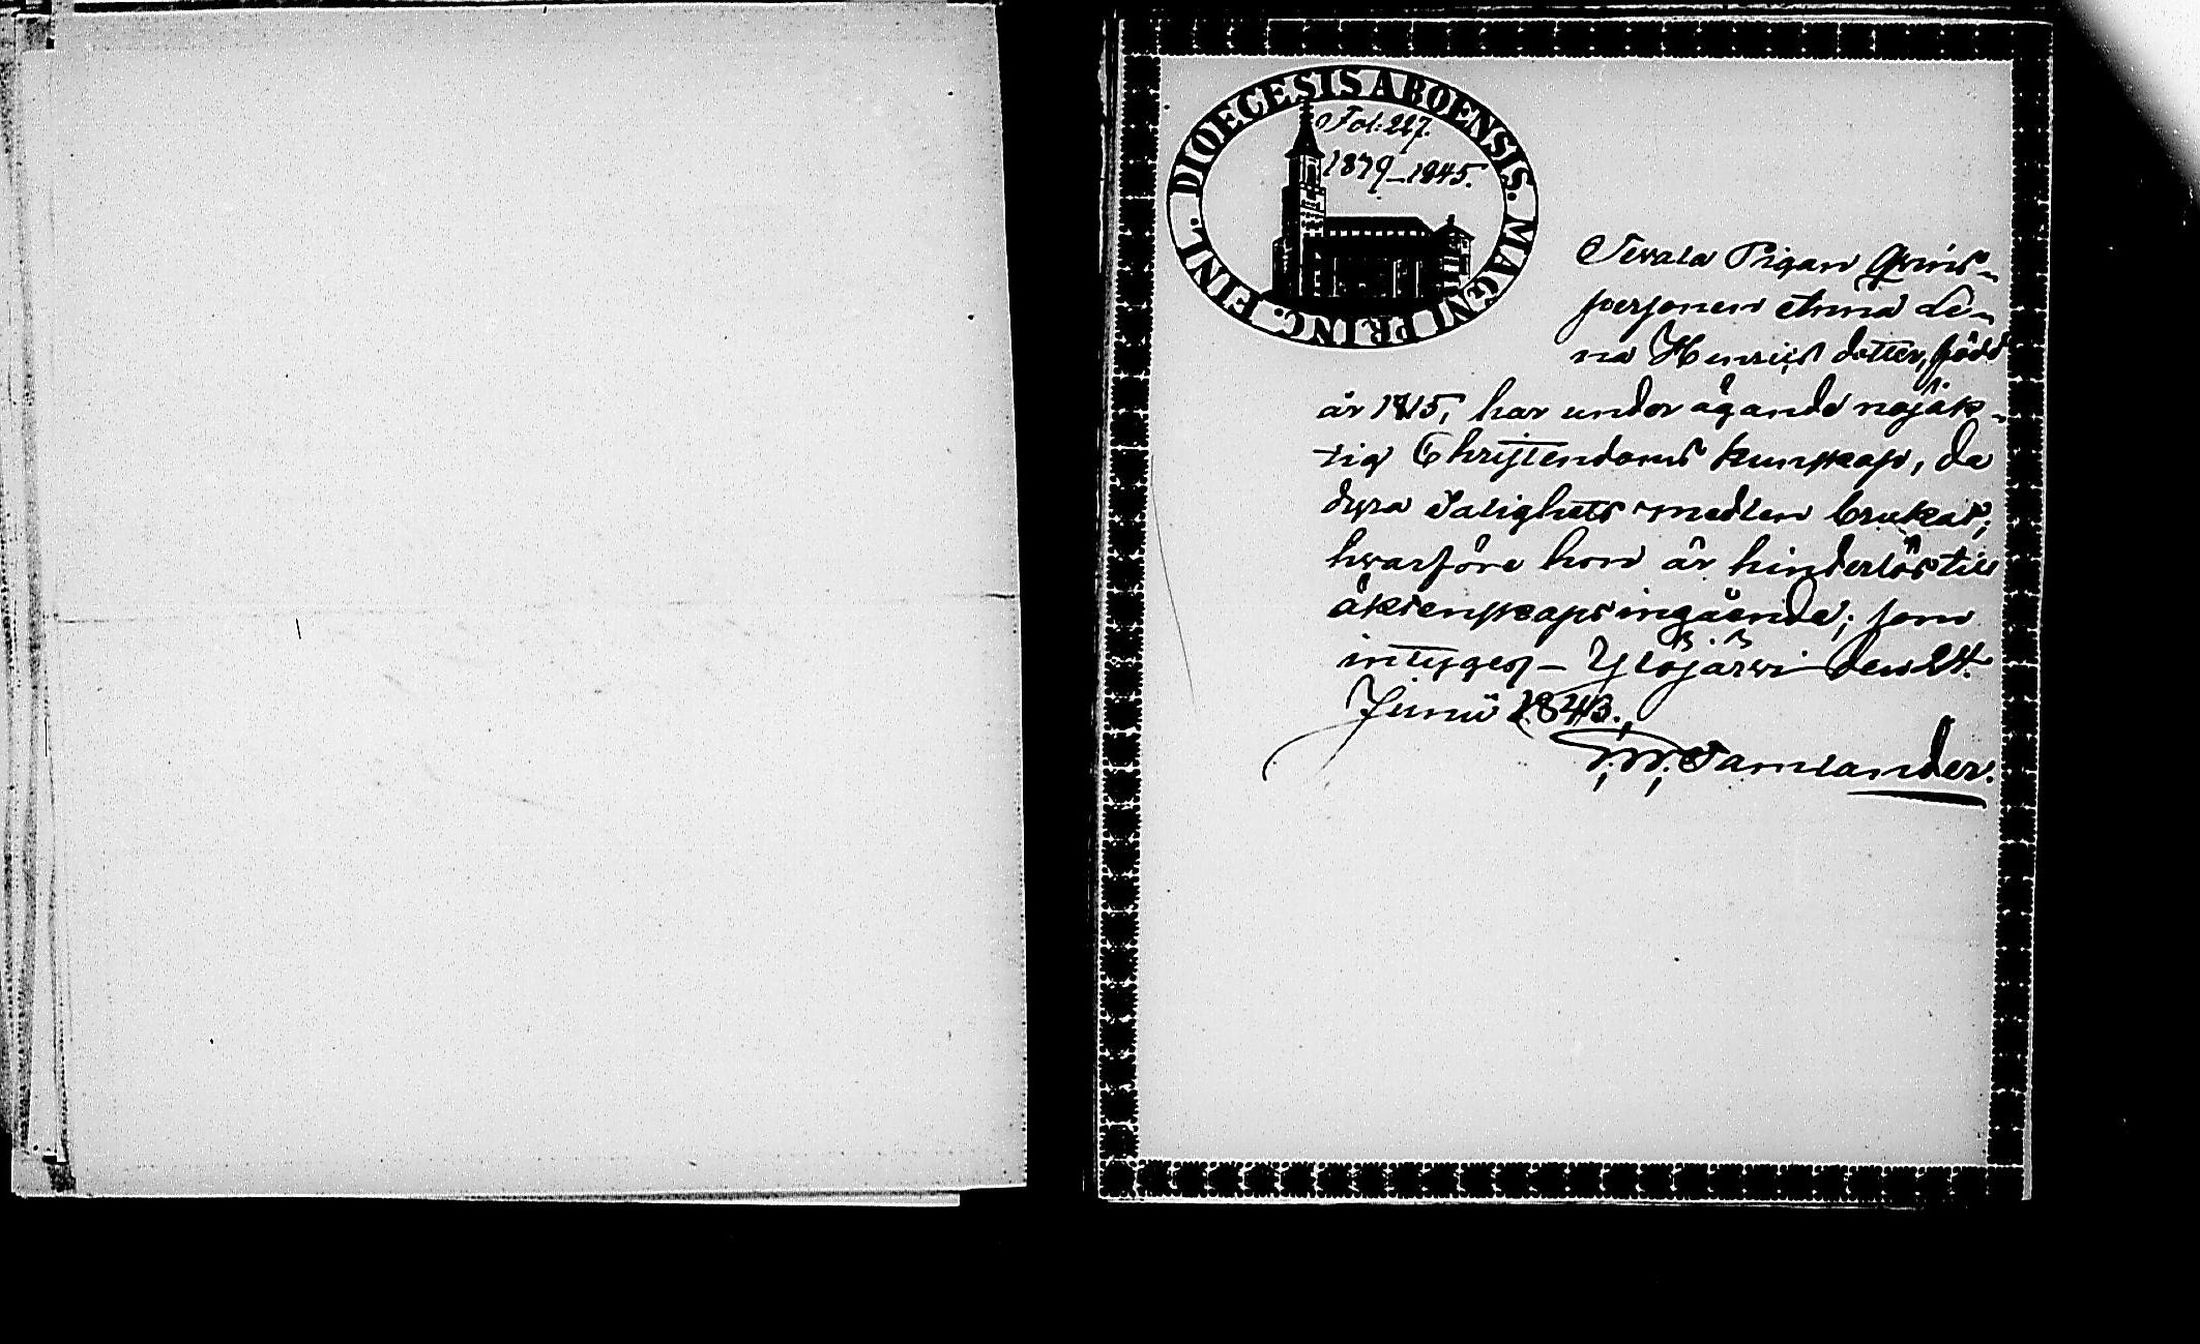 DIOECESIS ABOENSIS. MAGNI PRINC. FINL.
Fol: 227.
1839–1845.
Pigan Qvins-
personen Anna Le-
na Henrichs dotter, född
år 1815, har under ägande nöjak-
tig Christendoms kunskap, de
dyra Salighets medlen brukat;
hvarföre hon är hinderlös till
äktenskaps ingående; som
intygas – Ylöjärvi den 24.
Junii 1843.